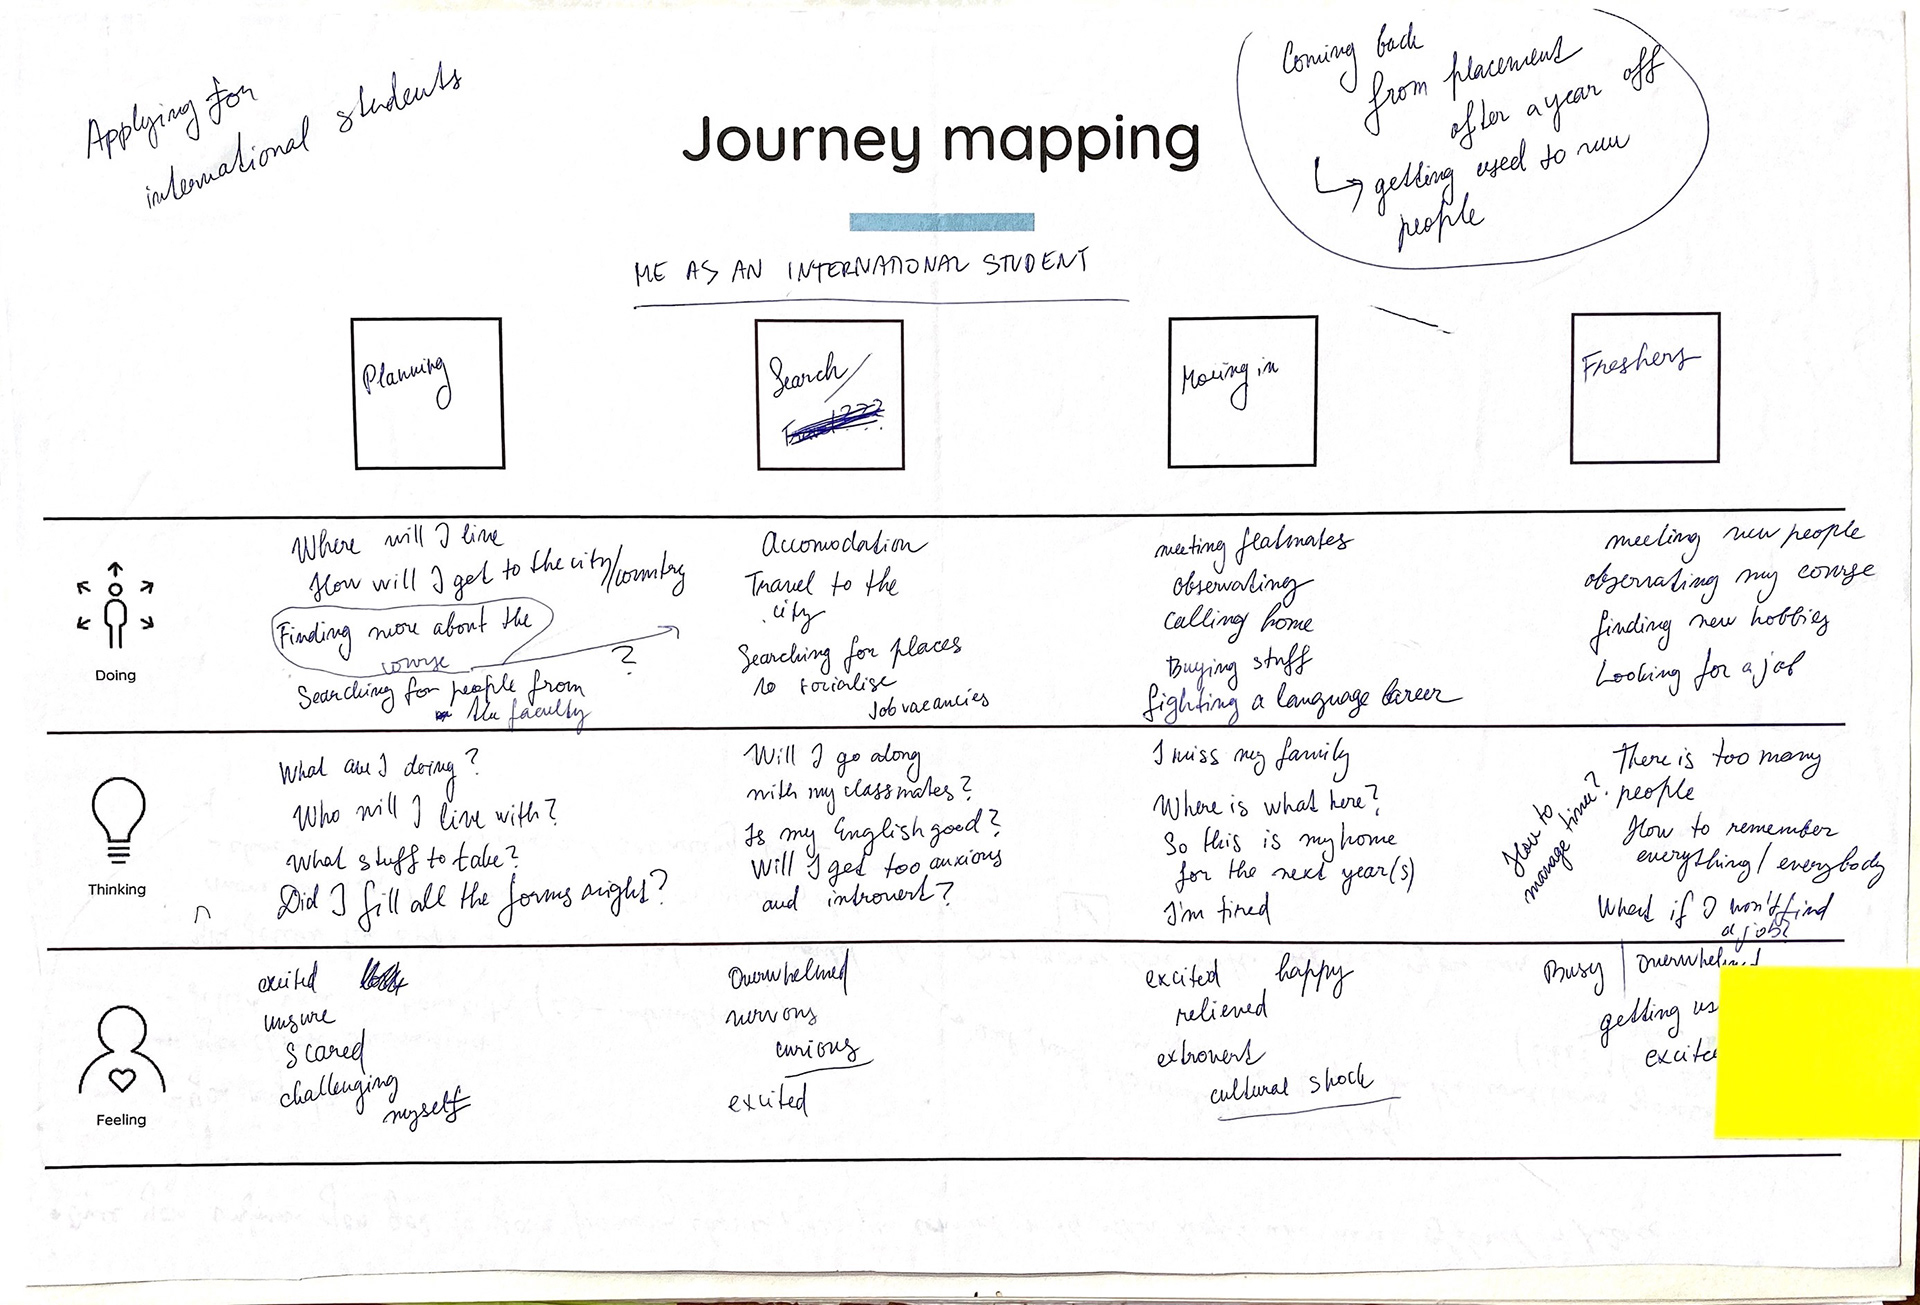 Applying for
international students
Journey mapping
Coming back
from placement
after a year off
↳ getting used to new
people
ME AS AN INTERNATIONAL STUDENT
Planning
Search/
Moving in
Freshers
Doing
Where will I live
How will I get to the city/country
Finding more about the
course
?
Searching for people from
the faculty
Accomodation
Travel to the
city
Searching for places
to socialise
Job vacancies
meeting flatmates
observating
calling home
Buying stuff
fighting a language career
meeting new people
observating my course
finding new hobbies
Looking for a job
Thinking
What am I doing?
Who will I live with?
What stuff to take?
Did I fill all the forms right?
Will I go along
with my classmates?
Is my English good?
Will I get too anxious
and introvert?
I miss my family
Where is what here?
So this is my home
for the next year(s)
I'm tired
How to
manage time?
There is too many
people
How to remember
everything/everybody
What if I won't find
a job?
Feeling
excited
unsure
scared
challenging
myself
Overwhelmed
nervous
curious
excited
excited happy
relieved
extrovert
cultural shock
Busy | overwhelmed
getting us
excite